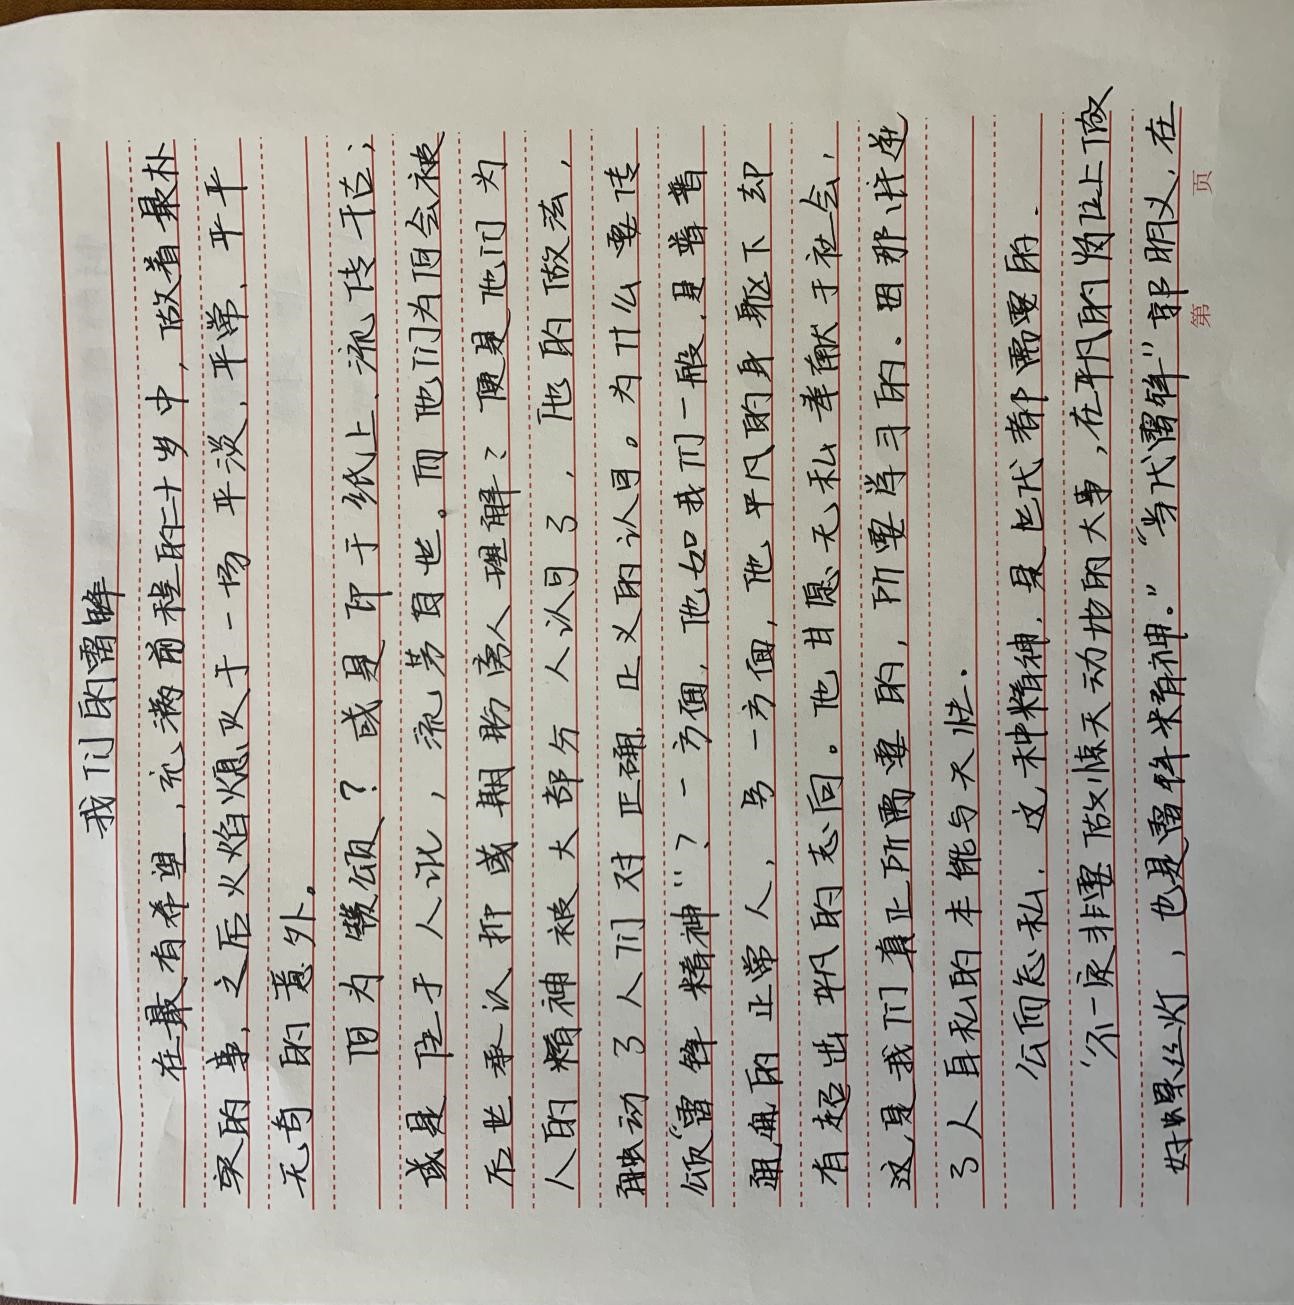 我们的雷锋
在最有希望，充满前程的二十岁中，做着最朴
实的事，之后火焰熄灭于一场平淡、平常、平平
无奇的意外。
何为赞颂？或是印于纸上，流传千古；
或是住于人心，流芳百世。而他们为何会被
后世承认抑或期盼离人理解？便是他们为
人的精神被大部分人认可了，他的做法，
触动了人们对正确正义的认同。为什么要传
颂“雷锋精神”？一方面，他如我们一般，是普普
通通的正常人，另一方面，他平凡的身躯下却
有超出平凡的志向。他甘愿无私奉献于社会，
这是我们真正所需要的，所要学习的。因那忤逆
了人自私的本能与天性。
公而忘私，这种精神，是世代都需要的。
“不一定非要做惊天动地的大事，在平凡的岗位上做
好螺丝钉，也是雷锋精神。”“当代雷锋”郭明义，在
第 页